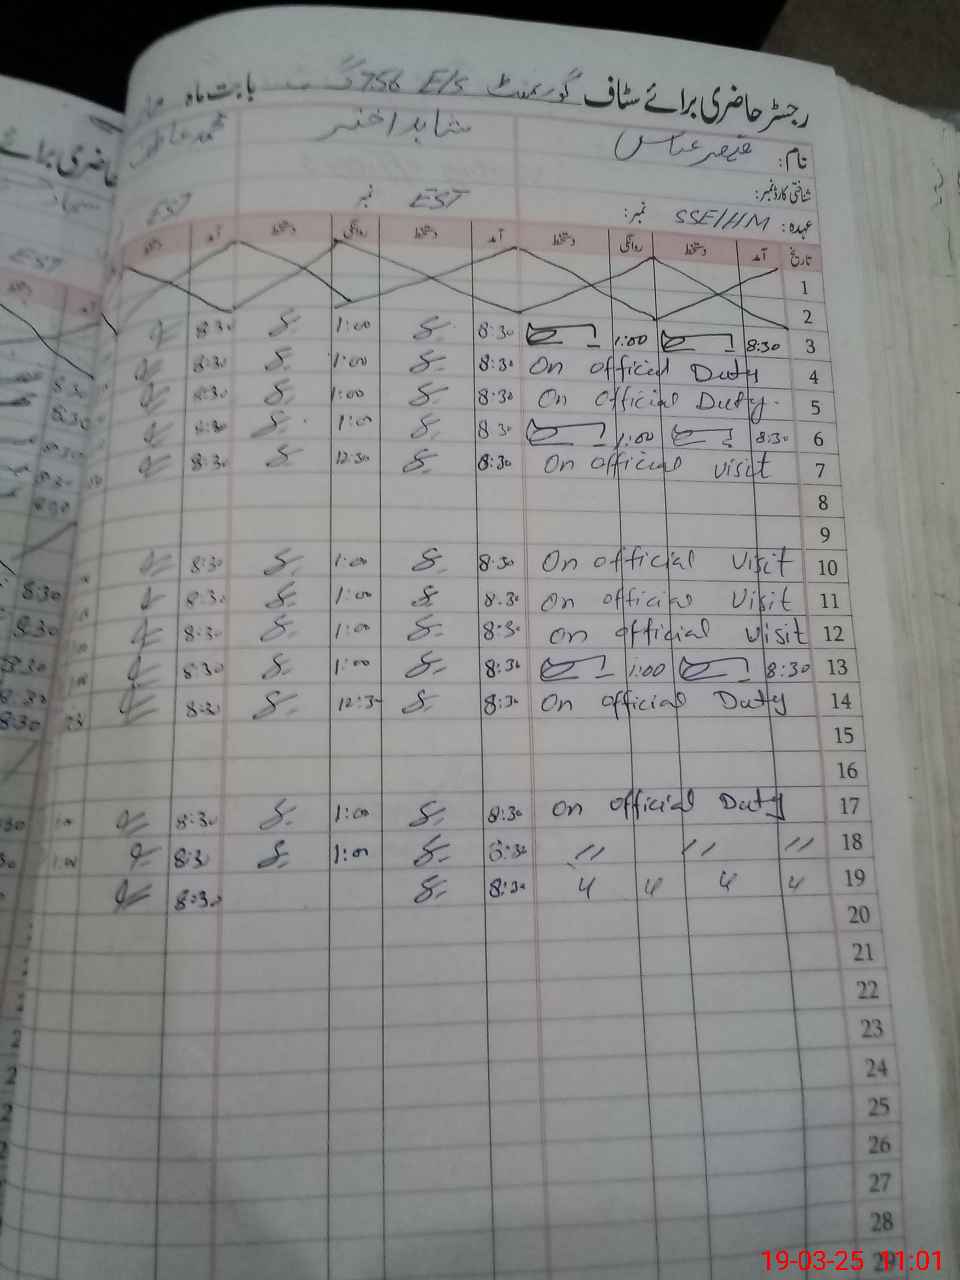 رجسٹر حاضری برائے سٹاف گورنمنٹ E/S 756 گ ب بابت ماہ
نام: قیصر عباس شاہد اختر محمد
شناختی کارڈ نمبر:
عہدہ: SSE/HM نمبر: EST نمبر EST
تاریخ آمد دستخط روانگی دستخط آمد دستخط روانگی دستخط آمد دستخط
1
2
3 8:30 1:00 8:30 1:00 8:30
4 On official Duty 8:30 1:00 8:30
5 On Official Duty. 8:30 1:00 8:30
6 8:30 1:00 8:30 1:00 8:30
7 On official visit 8:30 12:30 8:30
8
9
10 On official visit 8:30 1:00 8:30
11 On official visit 8:30 1:00 8:30
12 On official visit 8:30 1:00 8:30
13 8:30 1:00 8:30 1:00 8:30
14 On official Duty 8:30 12:30 8:30
15
16
17 On official Duty 8:30 1:00 8:30
18 〃 〃 〃 8:30 1:00 8:30
19 〃 〃 〃 〃 8:30 8:30
20
21
22
23
24
25
26
27
28
29
19-03-25 11:01